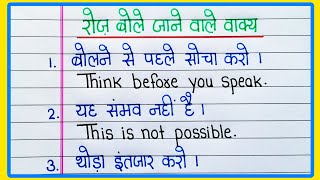 रोज़ बोले जाने वाले वाक्य
1. बोलने से पहले सोचा करो ।
Think before you speak.
2. यह संभव नहीं है ।
This is not possible.
3. थोड़ा इंतजार करो ।